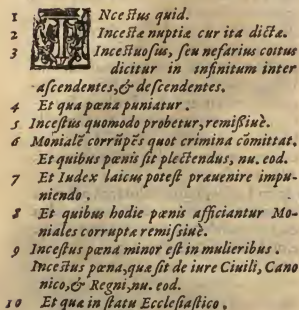 1 INcestus quid.
2 Incestæ nuptiæ cur ita dictæ.
3 Incestuosus, seu nefarius coitus
dicitur in infinitum inter
ascendentes, & descendentes.
4 Et qua pœna puniatur.
5 Incestus quomodo probetur, remißiuè.
6 Monialẽ corrũpẽs quot crimina cõmittat.
Et quibus pœnis sit plectendus, nu. eod.
7 Et Iudex laicus potest præuenire impu-
niendo.
8 Et quibus hodie pœnis afficiantur Mo-
niales corruptæ remißiuè.
9 Incestus pœna minor est in mulieribus.
Incestus pœna, quæ sit de iure Ciuili, Cano
nico, & Regni, nu. eod.
10 Et quæ in statu Ecclesiastico.